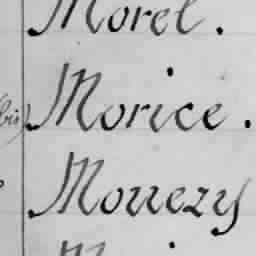 Morel.
bis) Morice.
Mouezy